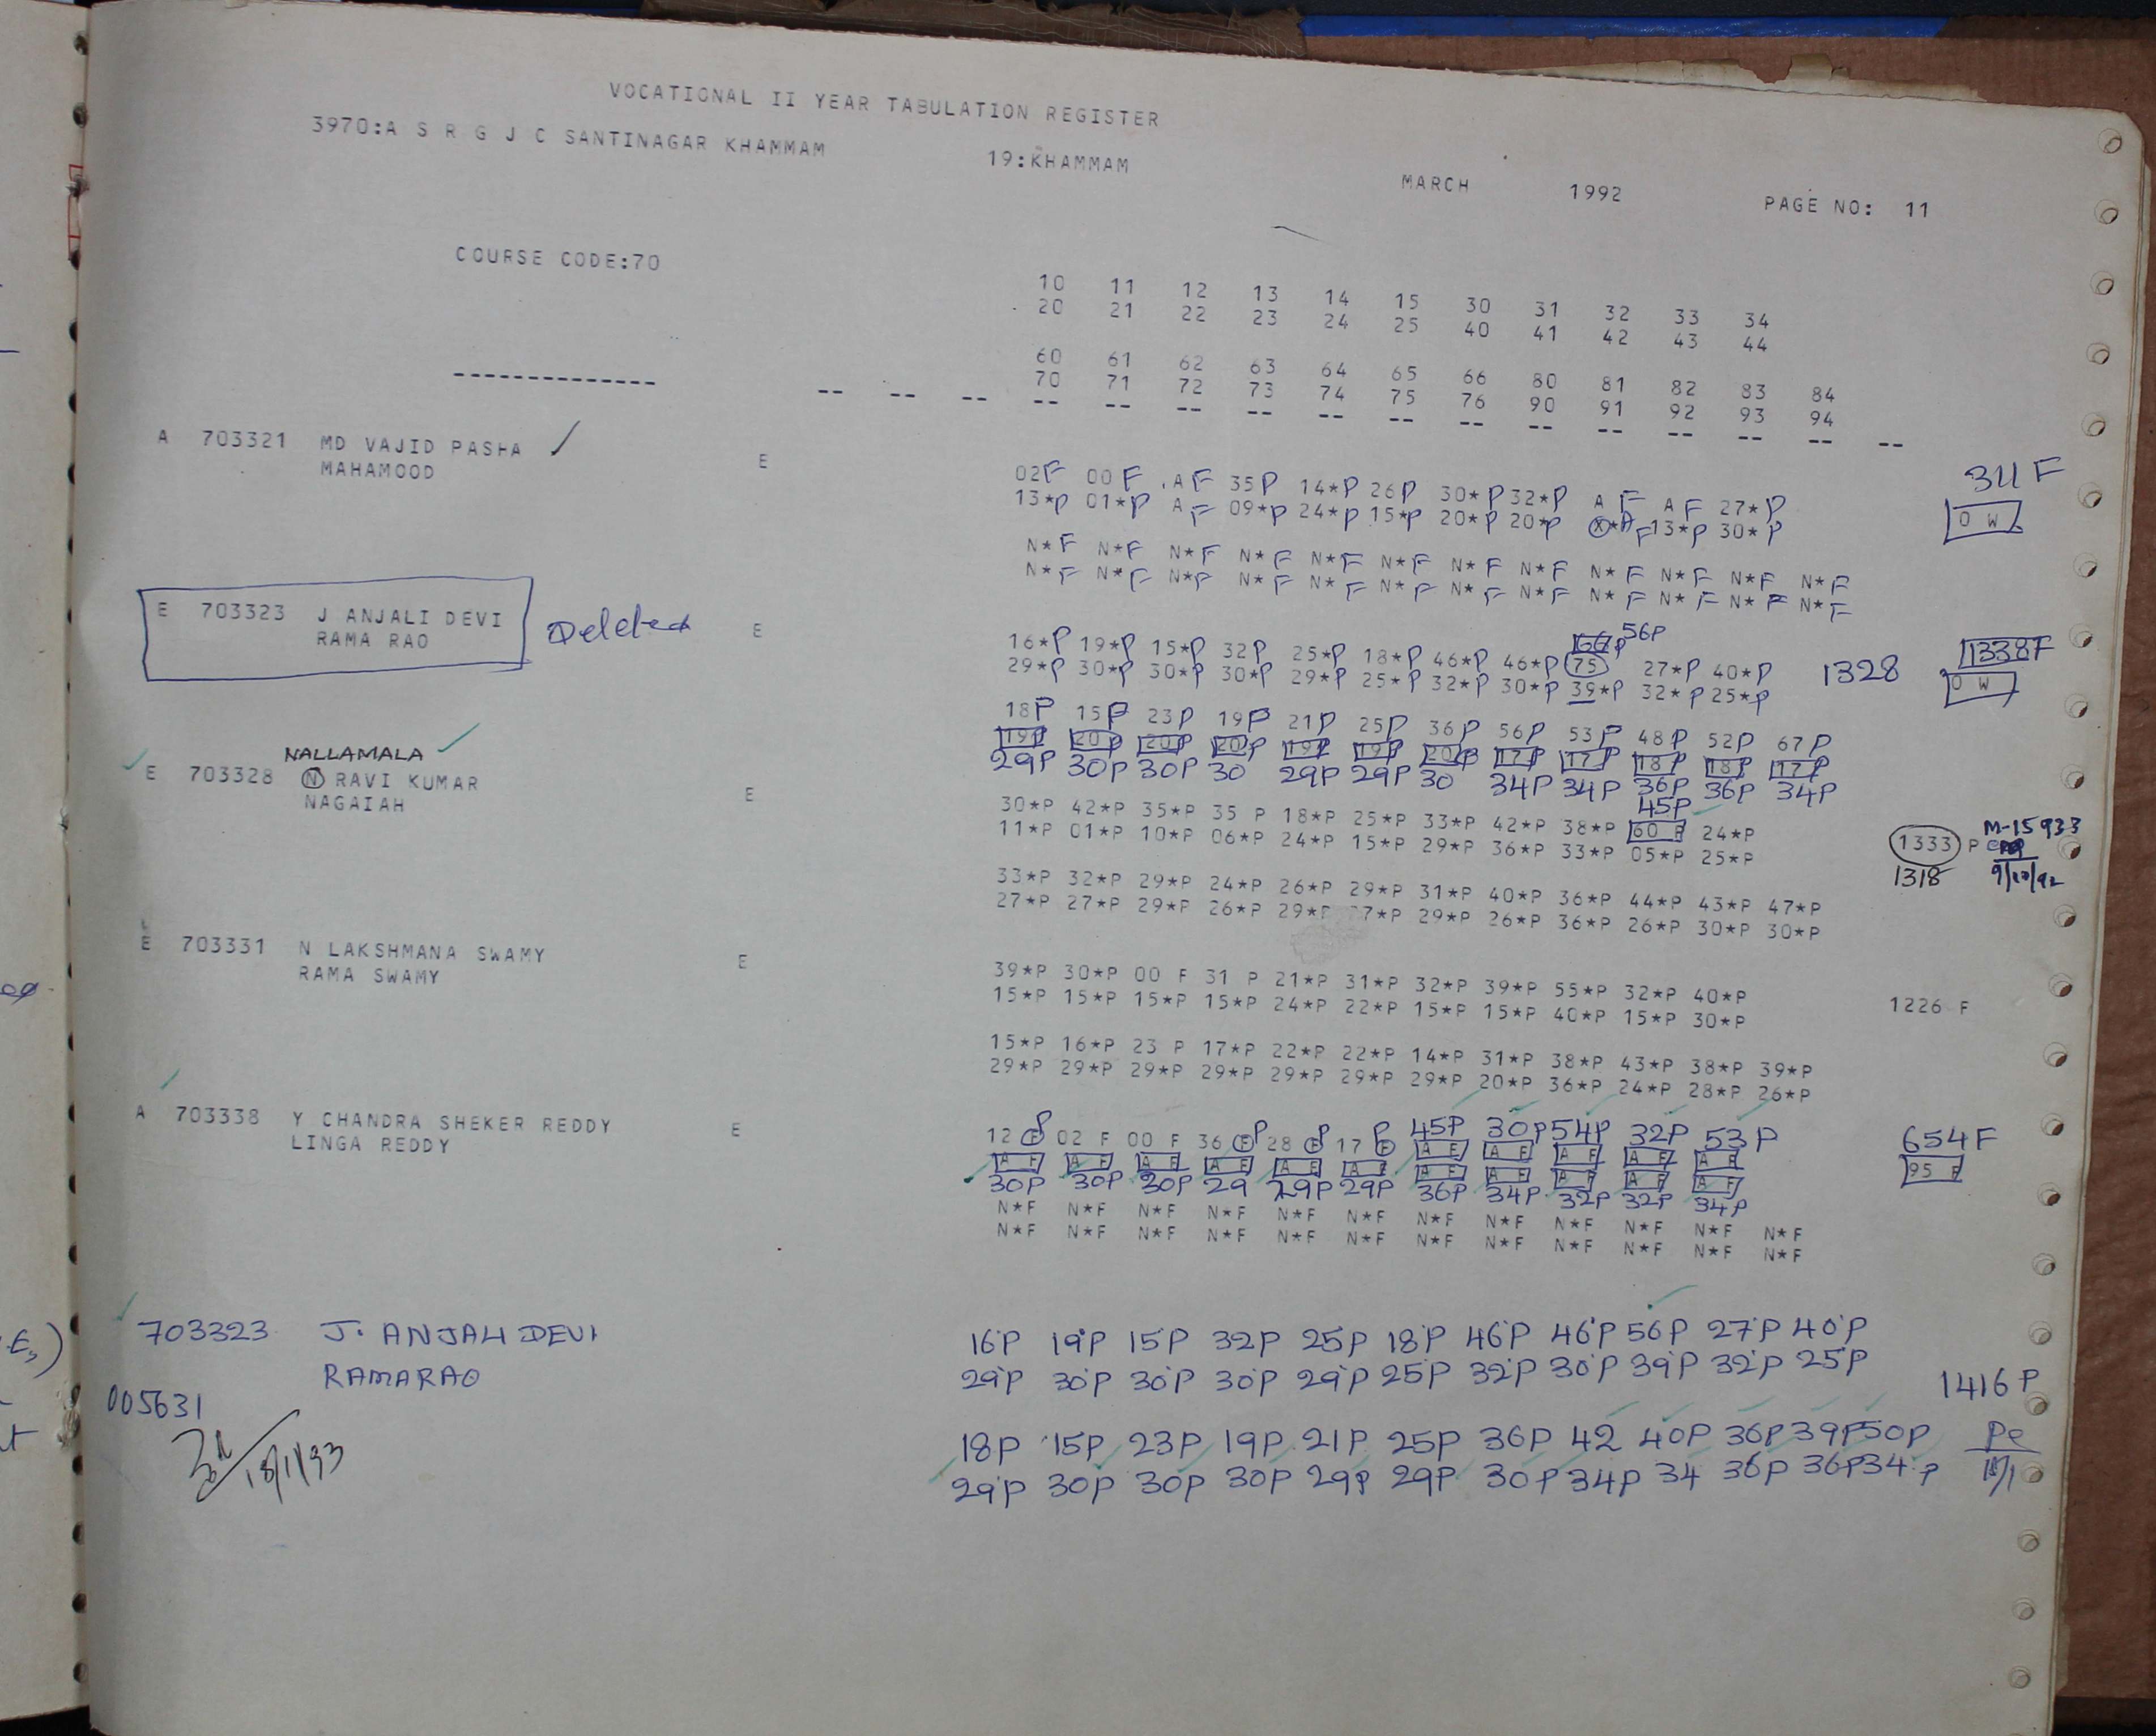 VOCATIONAL II YEAR TABULATION REGISTER
3970:A S R G J C SANTINAGAR KHAMMAM 19:KHAMMAM MARCH 1992 PAGE NO: 11
COURSE CODE:70
10 11 12 13 14 15 30 31 32 33 34
20 21 22 23 24 25 40 41 42 43 44
60 61 62 63 64 65 66 80 81 82 83 84
70 71 72 73 74 75 76 90 91 92 93 94
-------------- -- -- -- -- -- -- -- -- -- -- -- -- -- -- -- --
A 703321 MD VAJID PASHA E
MAHAMOOD
02F 00F AF 35P 14*P 26P 30*P 32*P A F A F 27*P 311 F
13*P 01*P A F 09*P 24*P 15*P 20*P 20*P A F 13*P 30*P 0 W
N*F N*F N*F N*F N*F N*F N*F N*F N*F N*F N*F N*F
N*F N*F N*F N*F N*F N*F N*F N*F N*F N*F N*F N*F
E 703323 J ANJALI DEVI Deleted E
RAMA RAO
56P
16*P 19*P 15*P 32P 25*P 18*P 46*P 46*P 75 27*P 40*P 1328 1338F
29*P 30*P 30*P 30*P 29*P 25*P 32*P 30*P 39*P 32*P 25*P 0 W
18P 15P 23P 19P 21P 25P 36P 56P 53P 48P 52P 67P
19P 20P 20P 20P 19P 19P 20P 17P 17P 18P 18P 17P
29P 30P 30P 30 29P 29P 30 34P 34P 36P 36P 34P
NALLAMALA
E 703328 N RAVI KUMAR E
NAGAIAH
45P
30*P 42*P 35*P 35 P 18*P 25*P 33*P 42*P 38*P 60 P 24*P M-15933
11*P 01*P 10*P 06*P 24*P 15*P 29*P 36*P 33*P 05*P 25*P 1333 P
1318 9/10/92
33*P 32*P 29*P 24*P 26*P 29*P 31*P 40*P 36*P 44*P 43*P 47*P
27*P 27*P 29*P 26*P 29*P 7*P 29*P 26*P 36*P 26*P 30*P 30*P
E 703331 N LAKSHMANA SWAMY E
RAMA SWAMY
39*P 30*P 00 F 31 P 21*P 31*P 32*P 39*P 55*P 32*P 40*P
15*P 15*P 15*P 15*P 24*P 22*P 15*P 15*P 40*P 15*P 30*P 1226 F
15*P 16*P 23 P 17*P 22*P 22*P 14*P 31*P 38*P 43*P 38*P 39*P
29*P 29*P 29*P 29*P 29*P 29*P 29*P 20*P 36*P 24*P 28*P 26*P
A 703338 Y CHANDRA SHEKER REDDY E
LINGA REDDY
P P P P 45P 30P 54P 32P 53P
12 F 02 F 00 F 36 F 28 F 17 F A F A F A F A F A F 654F
A F A F A F A F A F A F A F A F A F A F A F 95 F
30P 30P 30P 29 29P 29P 36P 34P 32P 32P 34P
N*F N*F N*F N*F N*F N*F N*F N*F N*F N*F N*F N*F
N*F N*F N*F N*F N*F N*F N*F N*F N*F N*F N*F N*F
703323 J. ANJALI DEVI
RAMARAO
16*P 19*P 15*P 32P 25*P 18*P 46*P 46*P 56P 27*P 40*P
29*P 30*P 30*P 30*P 29*P 25*P 32*P 30*P 39*P 32*P 25*P 1416 P
005631
18/1/93
18P 15P 23P 19P 21P 25P 36P 42 40P 36P 39P 50P
29P 30P 30P 30P 29P 29P 30P 34P 34 36P 36P 34P